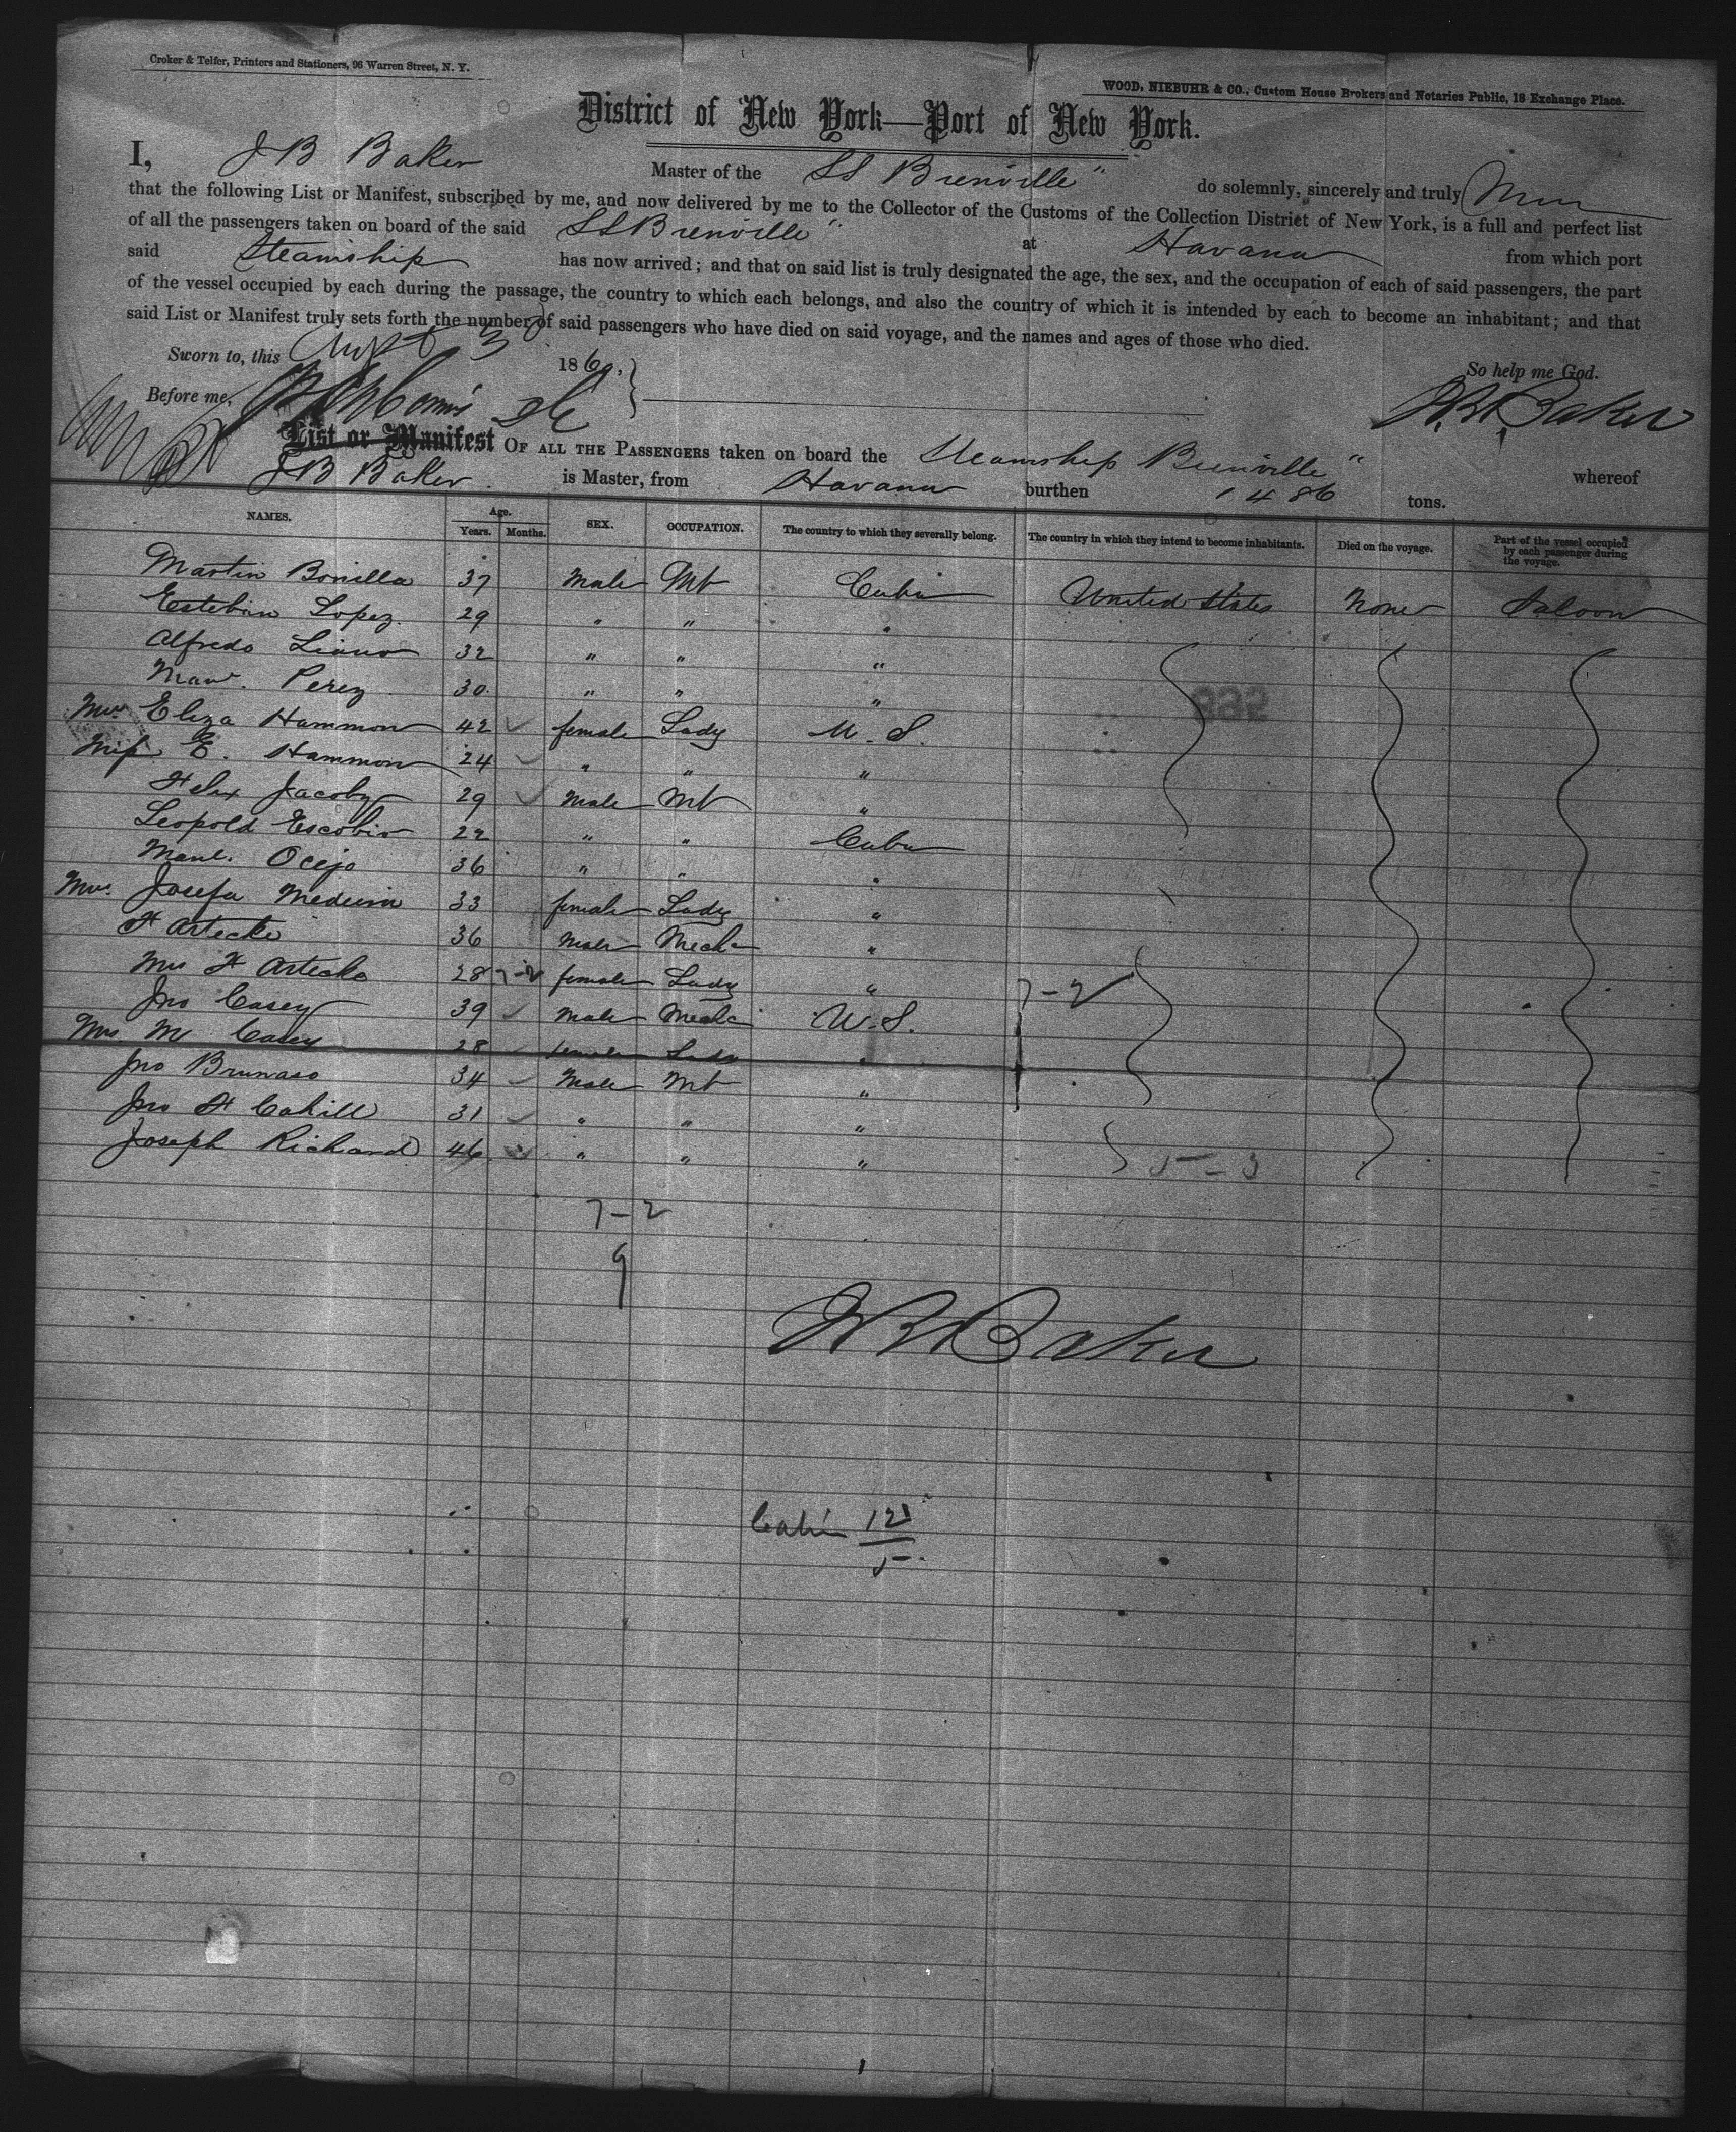 Croker & Telfer, Printers and Stationers, 96 Warren Street, N. Y.
WOOD, NIEBUHR & CO., Custom House Brokers and Notaries Public, 18 Exchange Place.
District of New York—Port of New York.
I, J B Baker Master of the SS Bienville" do solemnly, sincerely and truly
that the following List or Manifest, subscribed by me, and now delivered by me to the Collector of the Customs of the Collection District of New York, is a full and perfect list
of all the passengers taken on board of the said SS Bienville" at Havana from which port
said Steamship has now arrived; and that on said list is truly designated the age, the sex, and the occupation of each of said passengers, the part
of the vessel occupied by each during the passage, the country to which each belongs, and also the country of which it is intended by each to become an inhabitant; and that
said List or Manifest truly sets forth the number of said passengers who have died on said voyage, and the names and ages of those who died.
Sworn to, this 3 1869. So help me God.
Before me, Baker
List or Manifest OF ALL THE PASSENGERS taken on board the Steamship Bienville" whereof
J B Baker is Master, from Havana burthen 1486 tons.
NAMES. Age. Years. Months. SEX. OCCUPATION. The country to which they severally belong. The country in which they intend to become inhabitants. Died on the voyage. Part of the vessel occupied by each passenger during the voyage.
Martin Bonilla 37 Male Mt Cuba United States None Saloon
Esteban Lopez 29 " " "
Alfredo 32 " " "
Man. Perez 30 " " "
Mrs Eliza Hammon 42 female Lady U. S.
Miss E. Hammon 24 " " "
Felix Jacoby 29 Male Mt "
Leopold Escobio 22 " " Cuba
Manl. Ocejo 36 " " "
Mrs. Josefa 33 female Lady "
F Artecke 36 Male Mecha "
Mrs F Artecke 28 7-2 female Lady " 7-2
Jno Casey 39 Male Mecha U. S.
Mrs M Casey 28 female Lady "
Jno Brunaso 34 Male Mt "
Jno F Cahill 31 " " "
Joseph Richard 46 " " " 5-3
7-2
9
Baker
Cabin 12
5